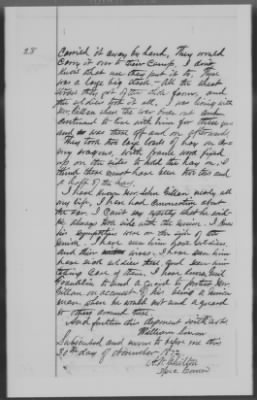 28
carried it away by hand, They would
carry it over to their camp, I don't
know what use they put it to, there
was a large big stack - All the wheat
straw they got of the Gillan farm, and
the soldiers took it all. I was living with
Mr. Gillan when the war broke out and
continued to live with him for three years
and was there off and on afterwards.
They took two large loads of hay on Army
wagons, with frames
up on the sides to hold the hay on, I
think there must have been two tons and
a half of the hay.
I have known Mr. John Gillan nearly all
my life, I have had conversation about
the war. I can't say exactly what he said
he always took side with the union. I know
his sympathies were on the side of the
union. I have seen him feed soldiers,
and wines. I have seen him
have sick soldiers there and seen him
taking care of them. I have known Genl
Franklin to send a guard to protect Mr.
Gillan on account of his being a union
man, when he would not send a guard
to others around there.
And further this deponent saith not.
William
Subscribed and sworn to before me this
30th day of November 1872